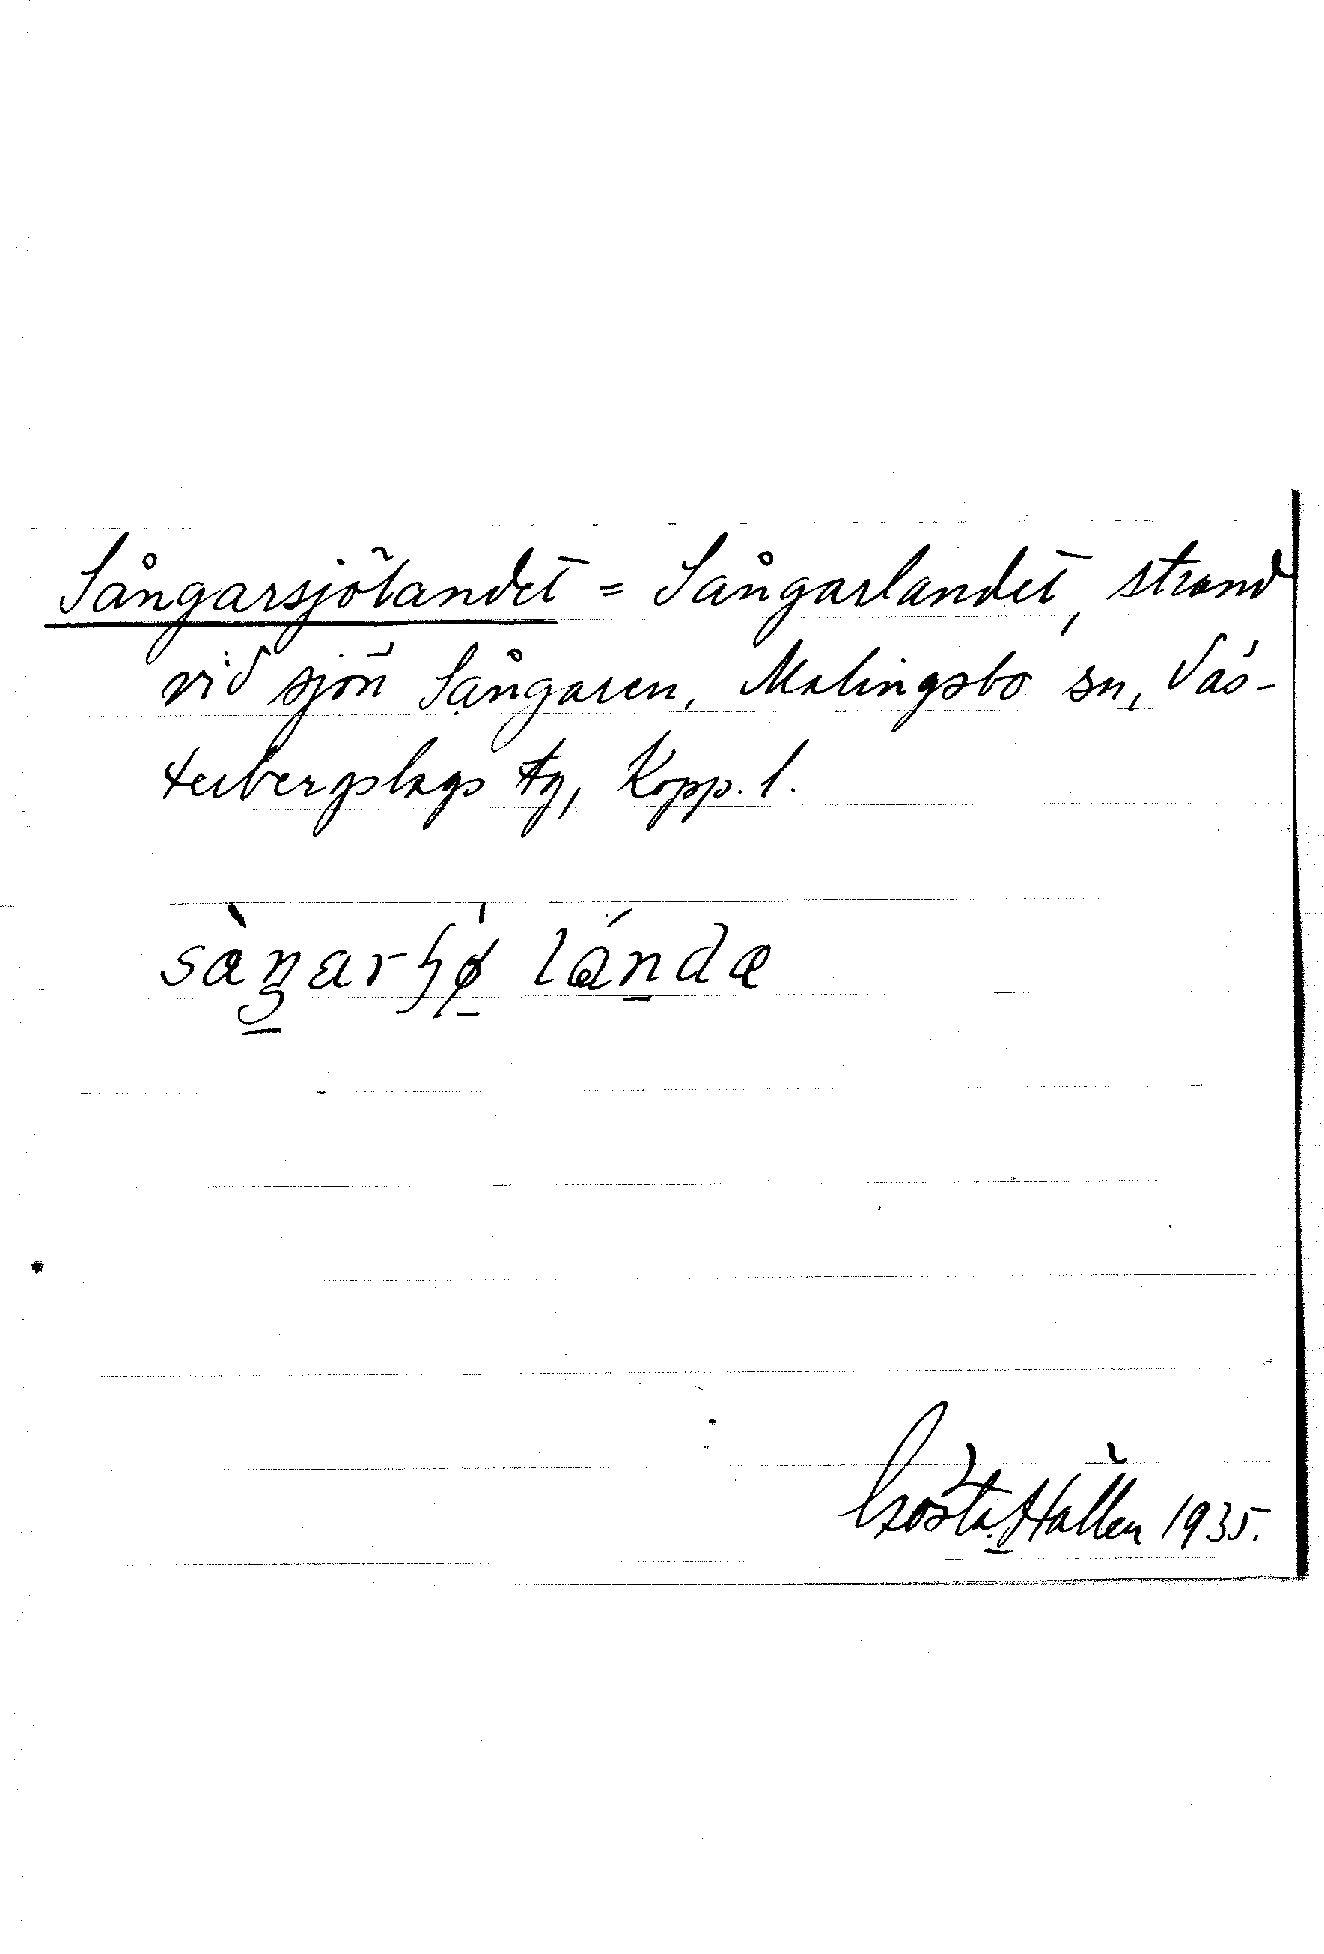 Sångarsjölandet = Sångarlandet, strand
vid sjön Sångaren, Malingsbo sn, Väs-
terbergslags tg, Kopp. l.
sàŋarʃǿ lándæ
Gösta Hallén 1935.